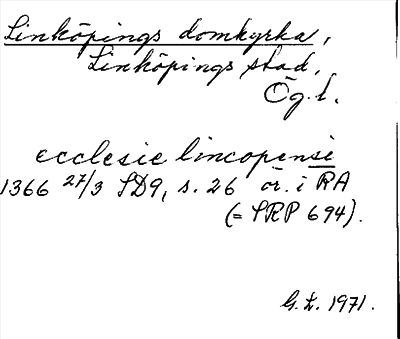 Linköpings domkyrka,
Linköpings stad,
Ög.l.
ecclesie lincopensi
1366 27/3 SD9, s. 26 or. i RA
(= SRP 694).
G.L. 1971.